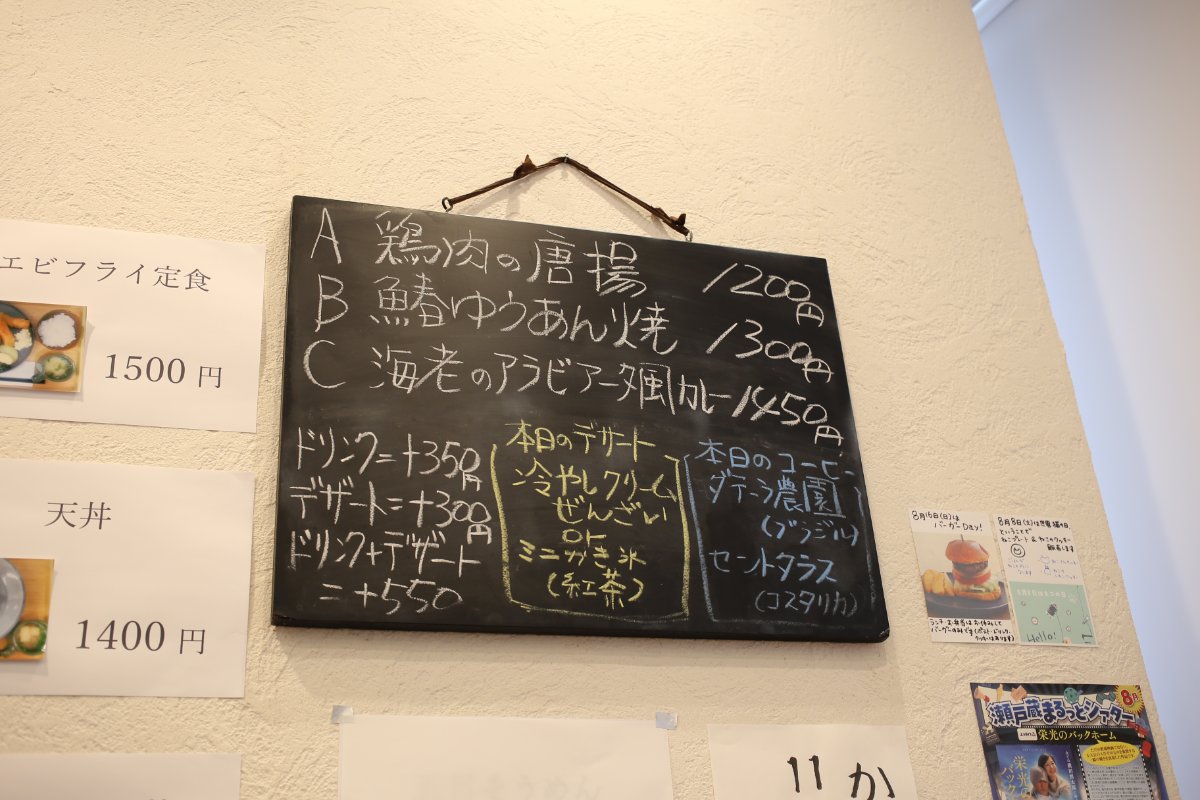 A 鶏肉の唐揚 1200円
B 鰆ゆうあん焼 1300円
C 海老のアラビアータ風カレー 1450円
ドリンク=+350円
デザート=+300円
ドリンク+デザート
=+550
本日のデザート
冷やしクリーム
ぜんざい
or
ミニかき氷
(紅茶)
本日のコーヒー
ダテーラ農園
(ブラジル)
セントタラス
(コスタリカ)
エビフライ定食
1500円
天丼
1400円
8月16日(日)は
バーガーDay!
8月8日(土)は世界猫の日
ということで
Hello!
瀬戸蔵まるっとシアター
8月
栄光のバックホーム
11 か